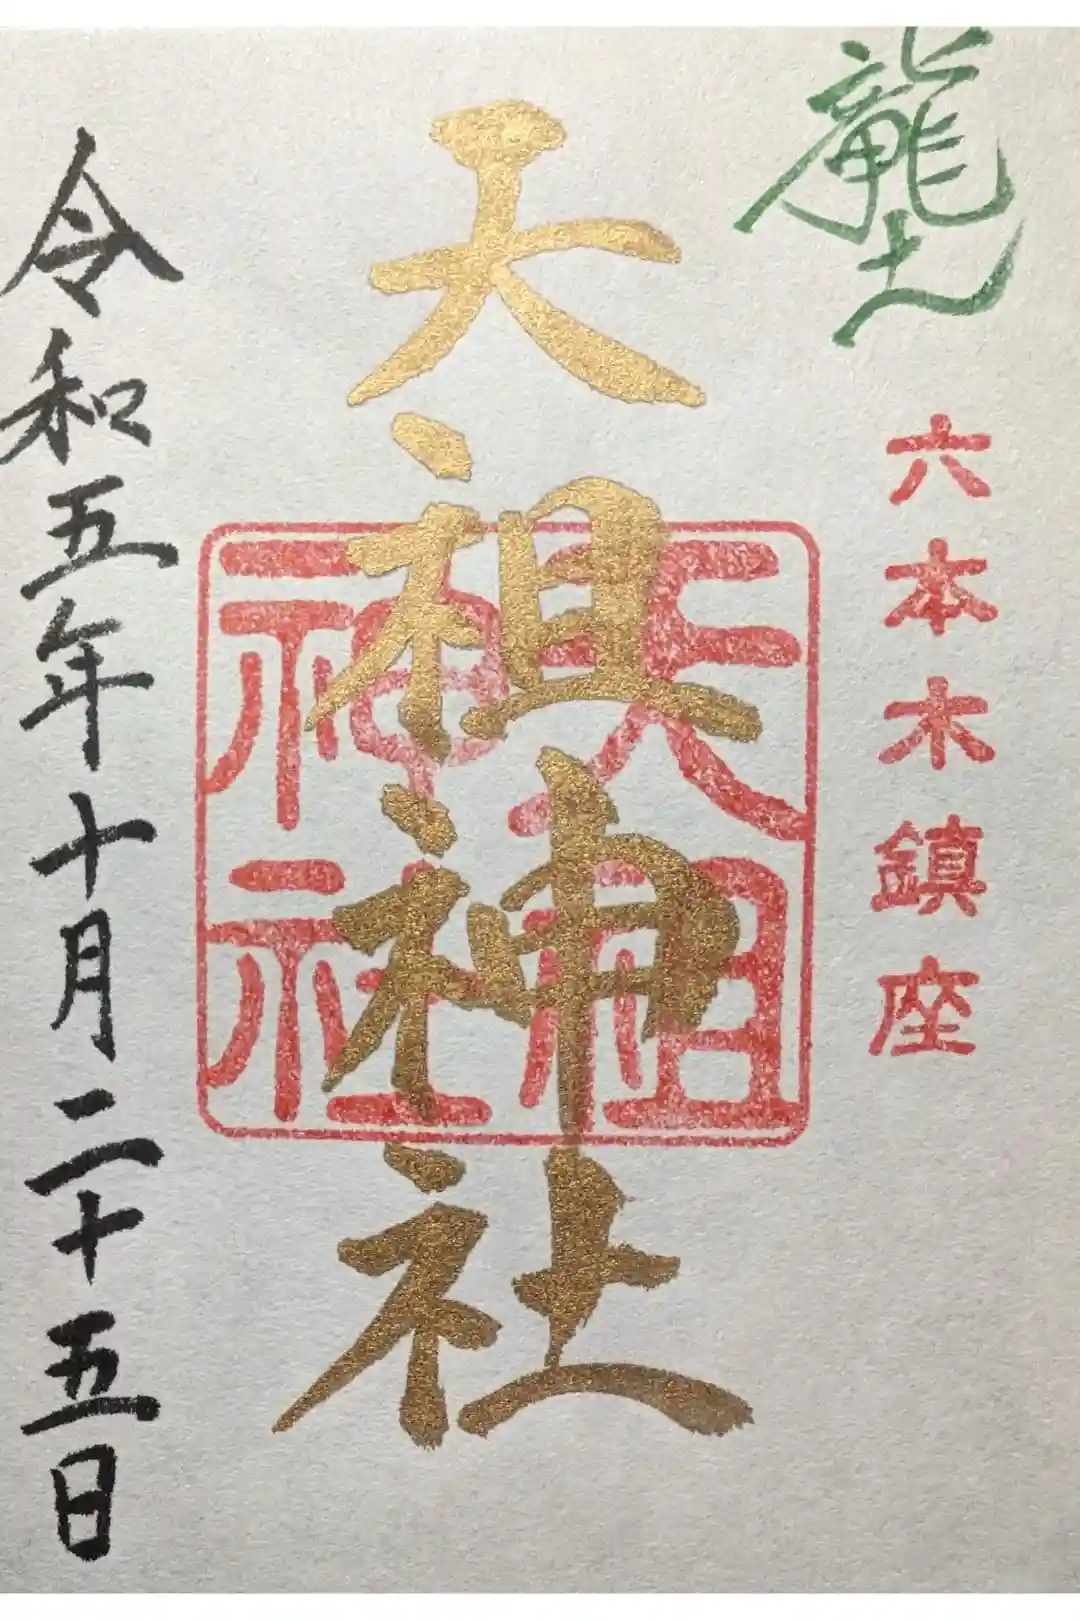 龍土
六本木鎮座
天祖神社
天祖神社
令和五年十月二十五日